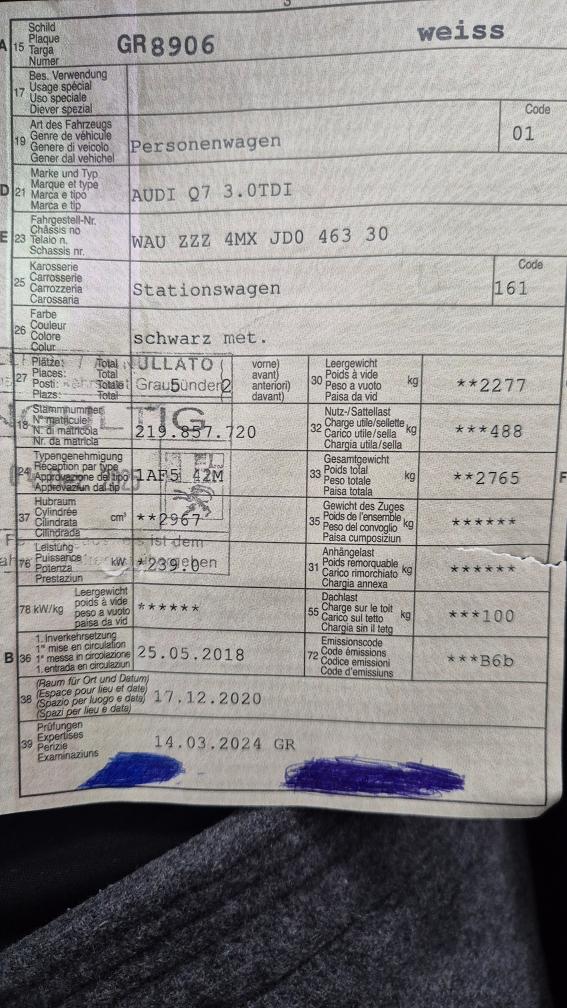 A 15 Schild
Plaque
Targa
Numer
GR8906 weiss
17 Bes. Verwendung
Usage spécial
Uso speciale
Diever spezial
19 Art des Fahrzeugs
Genre de véhicule
Genere di veicolo
Gener dal vehichel
Personenwagen
Code
01
D 21 Marke und Typ
Marque et type
Marca e tipo
Marca e tip
AUDI Q7 3.0TDI
E 23 Fahrgestell-Nr.
Châssis no
Telaio n.
Schassis nr.
WAU ZZZ 4MX JD0 463 30
25 Karosserie
Carrosserie
Carrozzeria
Carossaria
Stationswagen
Code
161
26 Farbe
Couleur
Colore
Colur
schwarz met.
27 Plätze: Total
Places: Total
Posti: Totale
Plazs: Total
ULLATO
Graubünden
5
2
vorne)
avant)
anteriori)
davant)
30 Leergewicht
Poids à vide
Peso a vuoto
Paisa da vid
kg
**2277
18 Stammnummer
N° matricule
N. di matricola
Nr. da matricla
219.857.720
32 Nutz-/Sattellast
Charge utile/sellette
Carico utile/sella
Chargia utila/sella
kg
***488
24 Typengenehmigung
Réception par type
Approvazione del tipo
Approvaziun dal tip
1AF5 42M
33 Gesamtgewicht
Poids total
Peso totale
Paisa totala
kg
**2765
F
37 Hubraum
Cylindrée
Cilindrata
Cilindrada
cm³
**2967
35 Gewicht des Zuges
Poids de l'ensemble
Peso del convoglio
Paisa cumposiziun
kg
******
ist dem
76 Leistung
Puissance
Potenza
Prestaziun
kW
*239.0
31 Anhängelast
Poids remorquable
Carico rimorchiato
Chargia annexa
kg
******
78 kW/kg
Leergewicht
poids à vide
peso a vuoto
paisa da vid
******
55 Dachlast
Charge sur le toit
Carico sul tetto
Chargia sin il tetg
kg
***100
B 36 1. Inverkehrsetzung
1re mise en circulation
1a messa in circolazione
1. entrada en circulaziun
25.05.2018
72 Emissionscode
Code émissions
Codice emissioni
Code d'emissiuns
***B6b
38 (Raum für Ort und Datum)
(Espace pour lieu et date)
(Spazio per luogo e data)
(Spazi per lieu e data)
17.12.2020
39 Prüfungen
Expertises
Perizie
Examinaziuns
14.03.2024 GR